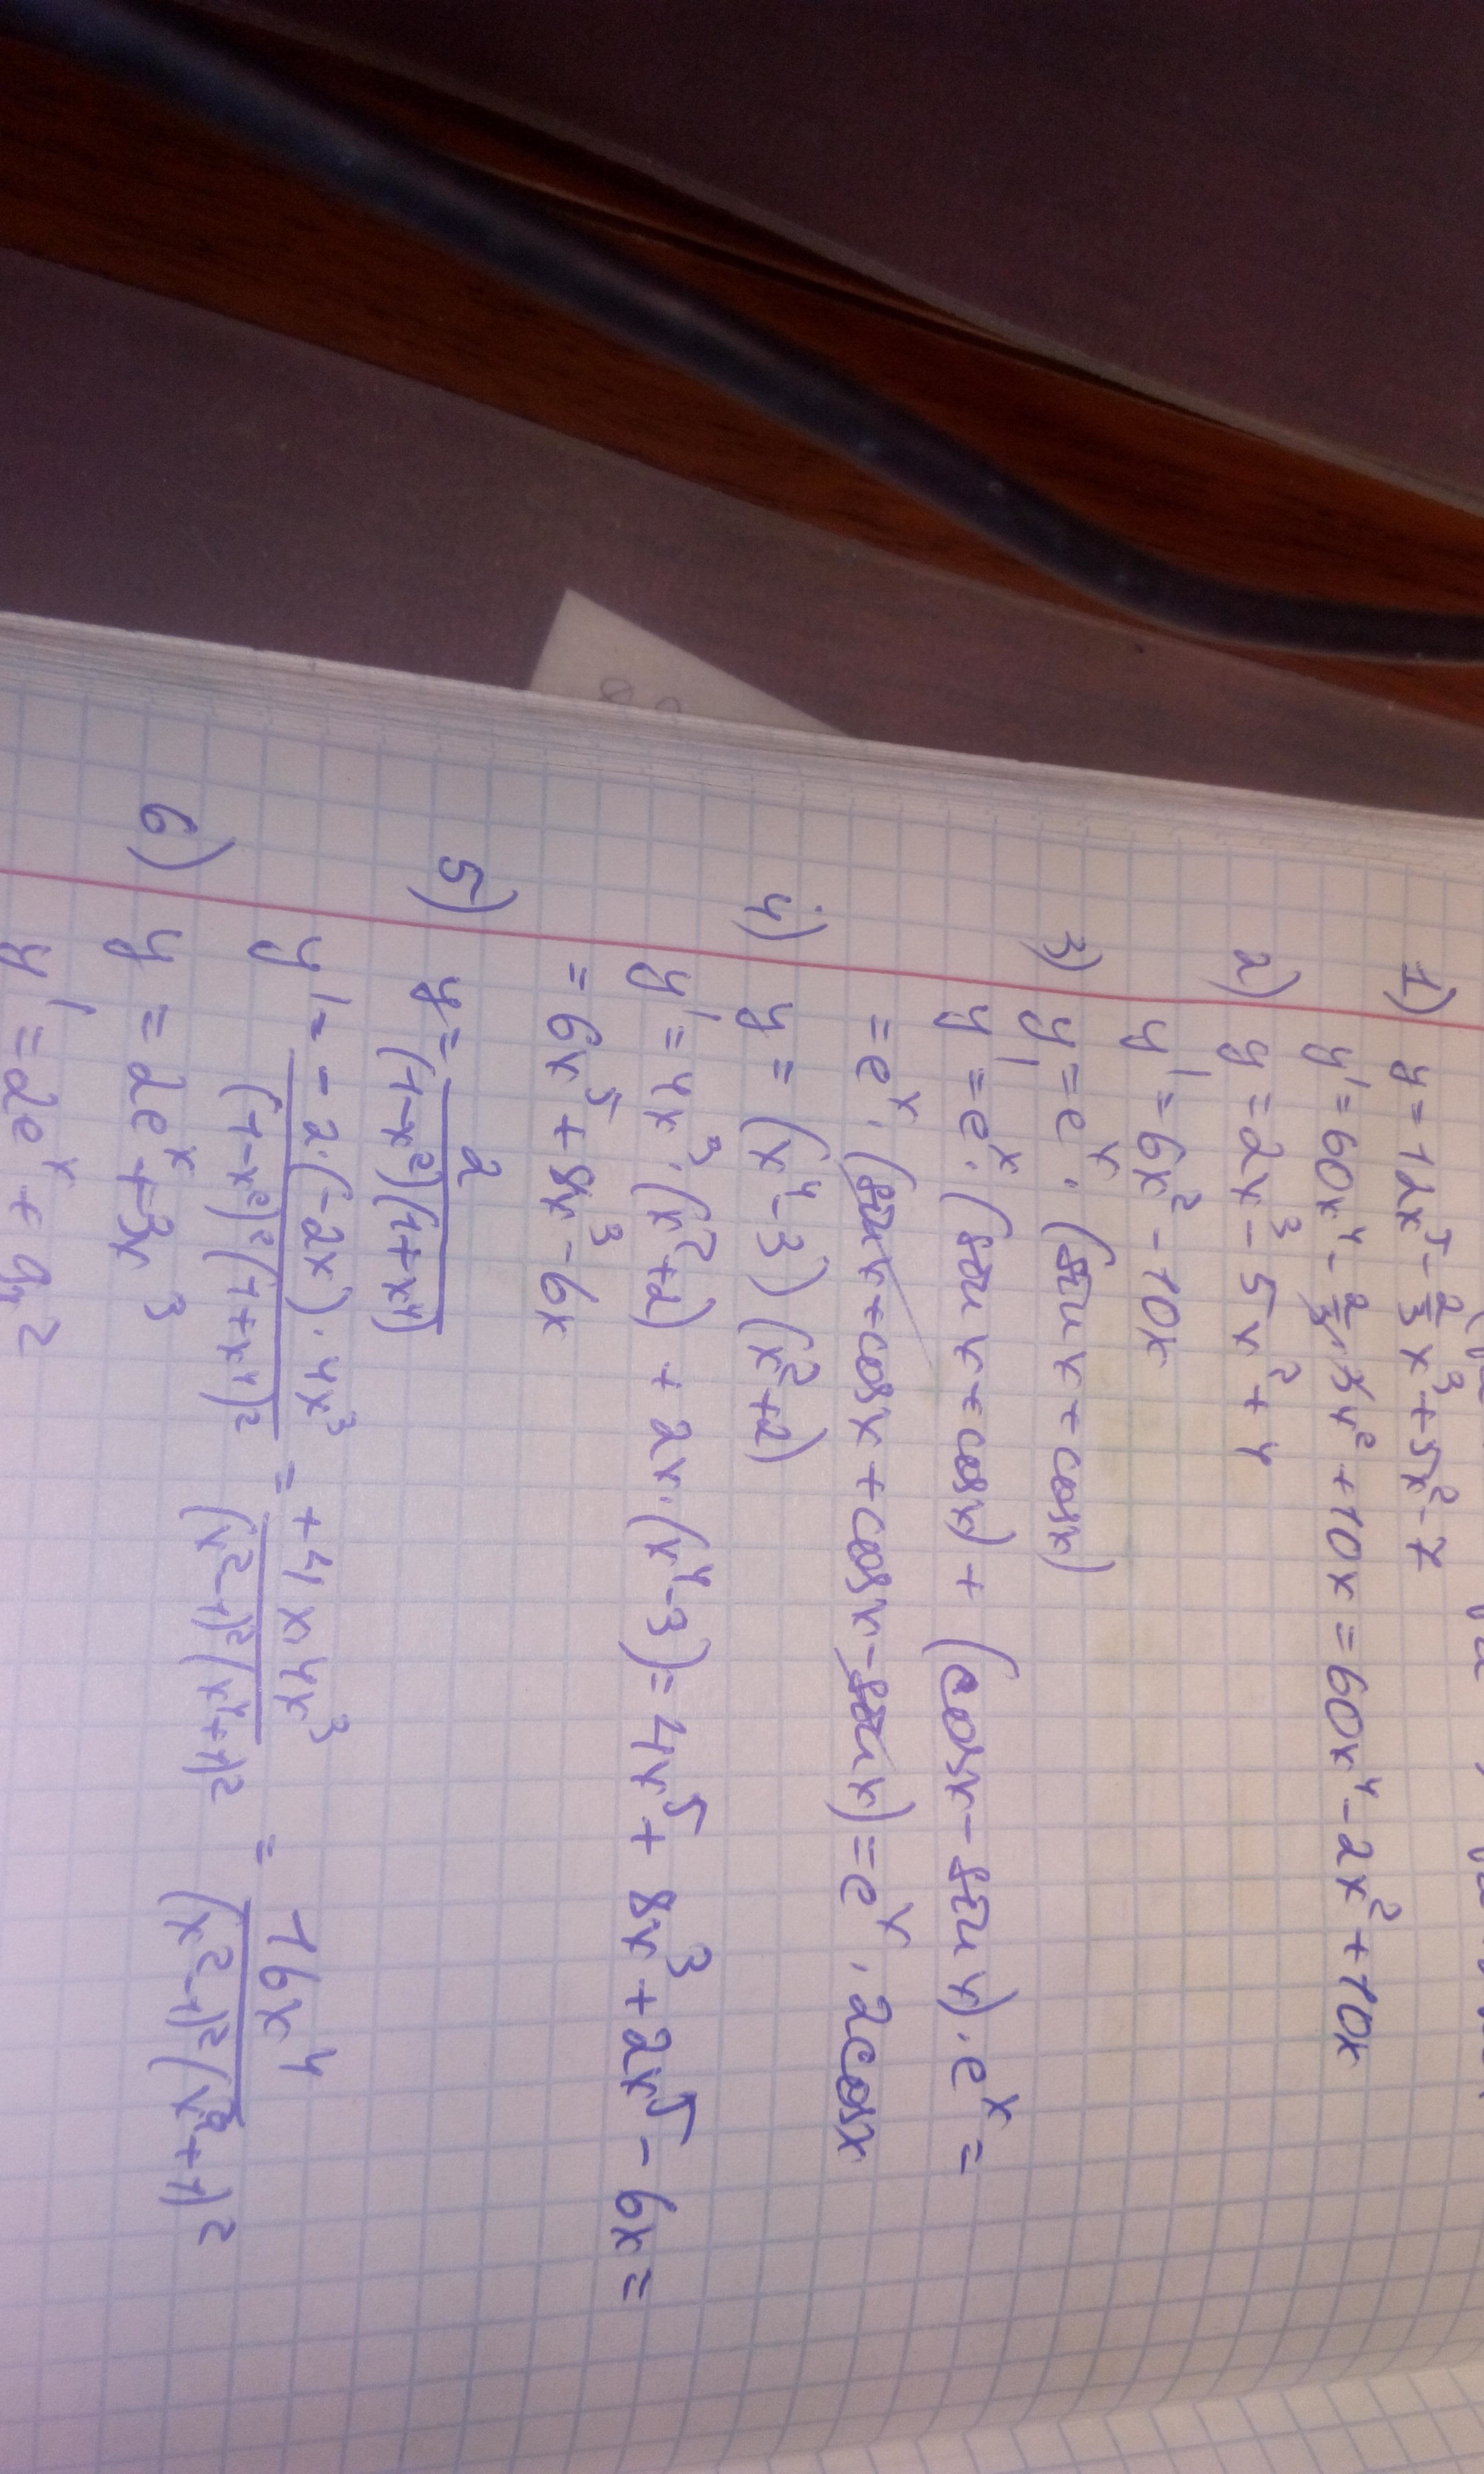 1) y = 12x⁵ - 2/3 x³ + 5x² - 7
y' = 60x⁴ - 2/3 · 3x² + 10x = 60x⁴ - 2x² + 10x
2) y = 2x³ - 5x² + 4
y' = 6x² - 10x
3) y' = eˣ · (sin x + cos x)
y' = eˣ · (sin x + cos x) + (cos x - sin x) · eˣ =
= eˣ · (sin x + cos x + cos x - sin x) = eˣ · 2cos x
4) y = (x⁴ - 3) (x² + 2)
y' = 4x³ · (x² + 2) + 2x · (x⁴ - 3) = 4x⁵ + 8x³ + 2x⁵ - 6x =
= 6x⁵ + 8x³ - 6x
5) y = 2/((1-x²)(1+x⁴))
y' = - 2·(-2x)·4x³/((1-x²)²(1+x⁴)²) = + 4x·4x³/((x²-1)²(x⁴+1)²) = 16x⁴/((x²-1)²(x⁸+1)²
6) y = 2eˣ + 3x³
y' = 2eˣ + 9x²